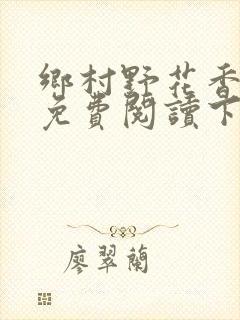 鄉村野花香
免費閱讀下
廖翠蘭